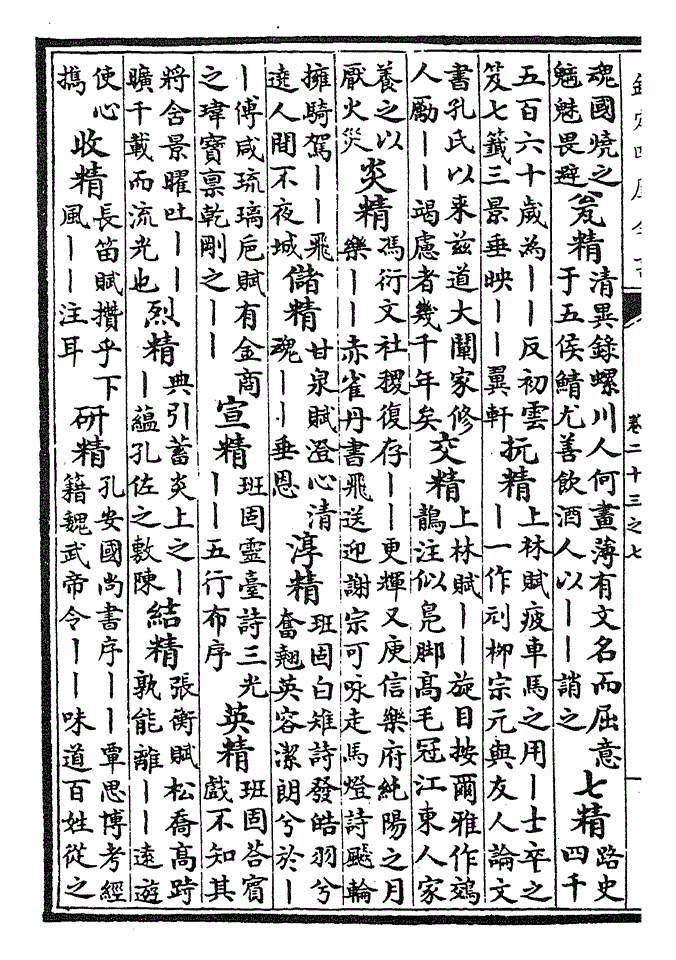 欽定四庫全書
卷二十三之七
魂國燒之
魑魅畏避
瓮精
清異錄螺川人何畫薄有文名而屈意
于五侯鯖尤善飲酒人以——誚之
七精
路史
四千
五百六十歲為——反初雲
笈七籤三景垂映——翼軒
抏精
上林賦疲車馬之用—士卒之
—一作刓柳宗元與友人論文
書孔氏以来兹道大闡家修
人勵——竭慮者幾千年矣
交精
上林賦——旋目按爾雅作鵁
鶄注似鳬脚髙毛冠江東人家
養之以
厭火災
炎精
馮衍文社稷復存——更輝又庾信樂府純陽之月
樂——赤雀丹書飛送迎謝宗可咏走馬燈詩飈輪
擁騎駕——飛
遶人間不夜城
儲精
甘泉賦澄心清
魂——垂恩
淳精
班固白雉詩發皓羽兮
奮翹英容潔朗兮於—
—傅咸琉璃巵賦有金商
之瑋寶禀乾剛之——
宣精
班固靈臺詩三光
——五行布序
英精
班固荅賓
戲不知其
將舍景曜吐——
曠千載而流光也
烈精
典引蓄炎上之—
—蘊孔佐之敷陳
結精
張衡賦松喬髙跱
孰能離——遠遊
使心
攜
收精
長笛賦攢乎下
風——注耳
研精
孔安國尚書序——覃思博考經
籍魏武帝令——味道百姓從之